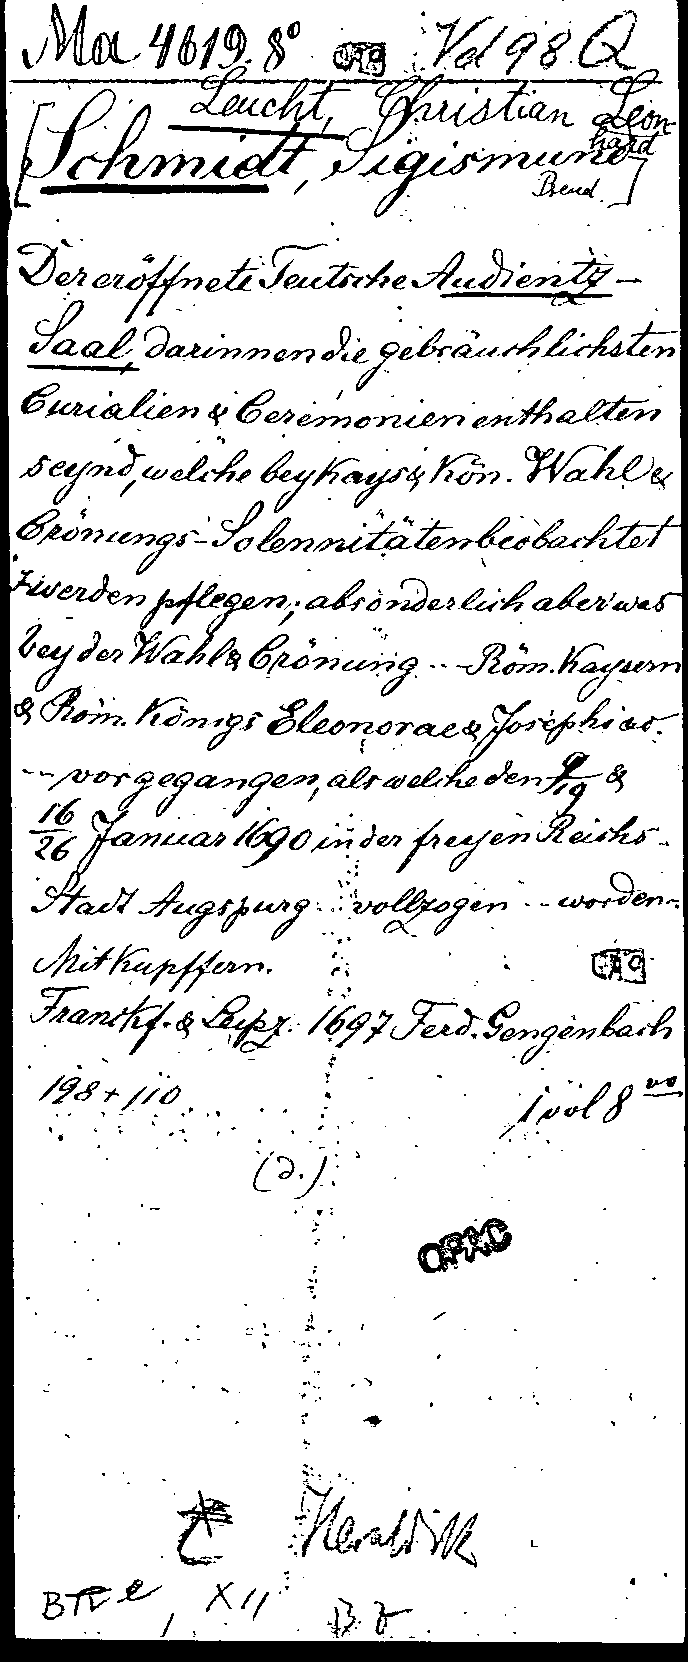 Ma 4619.8° Vd 98 Q
Leucht, Christian Leon
hard
[Schmidt, Sigismund
Pseud.]
Der eröffnete Teutsche Audientz-
Saal, darinnen die gebräuchlichsten
Curialien & Ceremonien enthalten
seynd, welche bey Kays & Kön. Wahl &
Crönungs-Solennitäten beobachtet
z werden pflegen; absonderlich aber was
bey der Wahl & Crönung --- Röm. Kaysern
& Röm. Königs Eleonorae & Josephi
-- vorgegangen, als welche den 9/19 &
16/26 Januar 1690 in der freyen Reichs-
Stadt Augspurg -- vollzogen -- worden.
Mit Kupffern.
Franckf. & Leipz. 1697 Ferd. Gengenbach
198 + 110
1 vol 8 vo
(d.)
OPAC
Heraldik
X 11